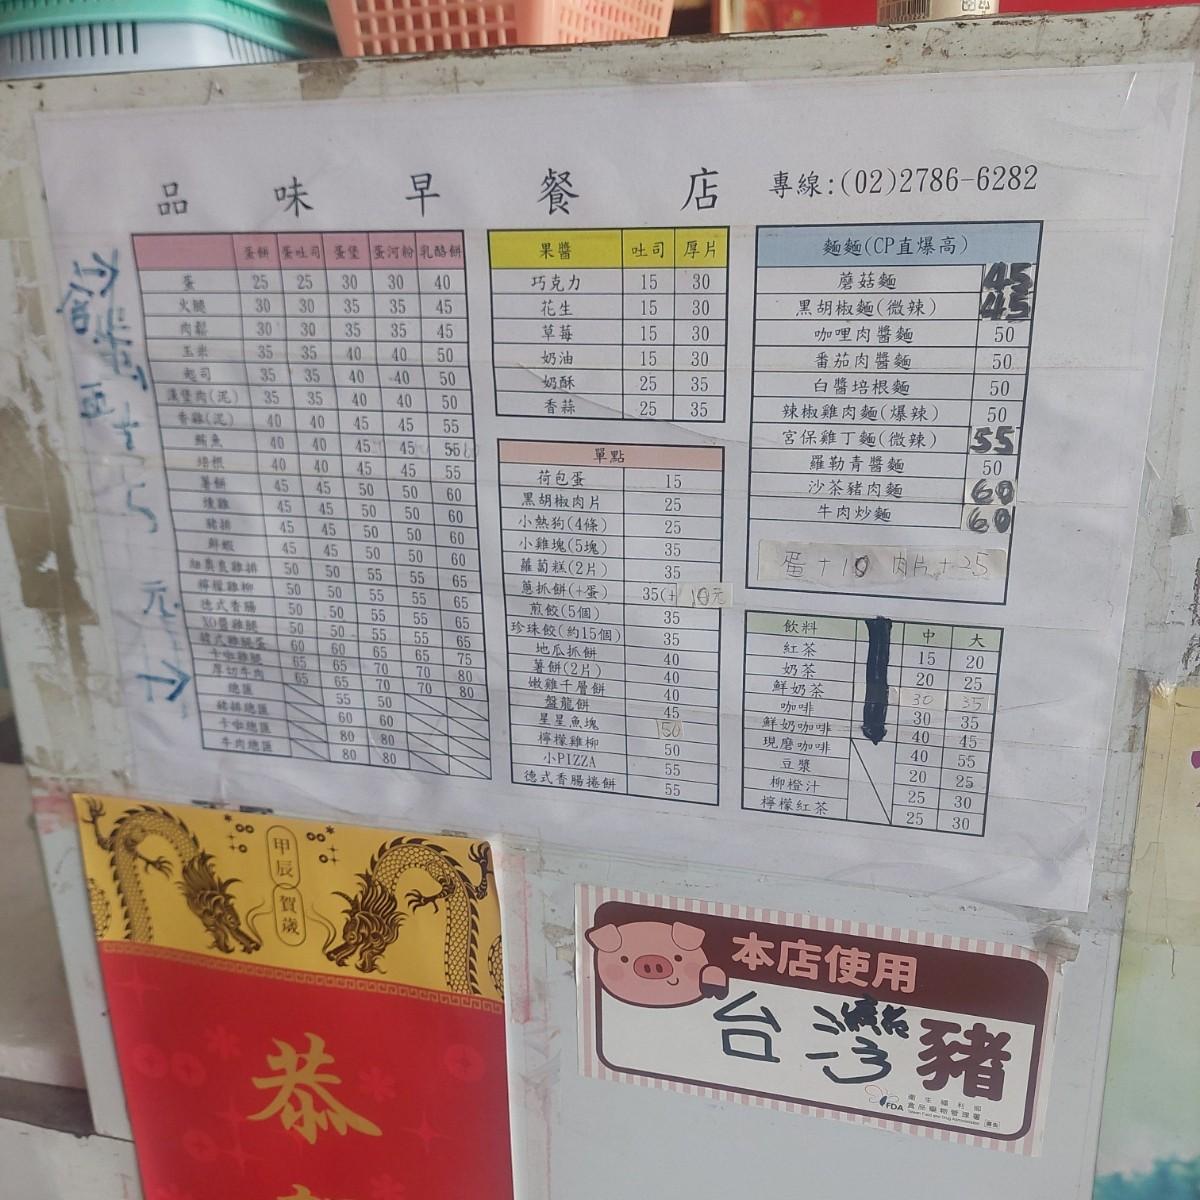 品味早餐店 專線:(02)2786-6282
蛋餅 蛋吐司 蛋堡 蛋河粉 乳酪餅
蛋 25 25 30 30 40
火腿 30 30 35 35 45
肉鬆 30 30 35 35 45
玉米 35 35 40 40 50
起司 35 35 40 40 50
漢堡肉(泥) 35 35 40 40 50
香雞(泥) 40 40 45 45 55
鮪魚 40 40 45 45
培根 40 40 45 45 55
薯餅 45 45 50 50 60
燻雞 45 45 50 50 60
豬排 45 45 50 50 60
鮮蝦 45 45 50 50 60
紐奧良雞排 50 50 55 55 65
檸檬雞柳 50 50 55 55 65
德式香腸 50 50 55 55 65
XO醬雞腿 50 50 55 55 65
韓式雞腿蛋 60 60 65 65 75
卡啦雞腿 65 65 70 70 80
厚切牛肉 65 65 70 70 80
總匯 55 50
豬排總匯 60 60
卡啦總匯 80 80
牛肉總匯 80 80
果醬 吐司 厚片
巧克力 15 30
花生 15 30
草莓 15 30
奶油 15 30
奶酥 25 35
香蒜 25 35
單點
荷包蛋 15
黑胡椒肉片 25
小熱狗(4條) 25
小雞塊(5塊) 35
蘿蔔糕(2片) 35
蔥抓餅(+蛋) 35(+ 10元
煎餃(5個) 35
珍珠餃(約15個) 35
地瓜抓餅 40
薯餅(2片) 40
嫩雞千層餅 40
盤龍餅 45
星星魚塊 50
檸檬雞柳 50
小PIZZA 55
德式香腸捲餅 55
麵麵(CP直爆高)
蘑菇麵 45
黑胡椒麵(微辣) 45
咖哩肉醬麵 50
番茄肉醬麵 50
白醬培根麵 50
辣椒雞肉麵(爆辣) 50
宮保雞丁麵(微辣) 55
羅勒青醬麵 50
沙茶豬肉麵 60
牛肉炒麵 60
蛋+10 肉片+25
飲料 中 大
紅茶 15 20
奶茶 20 25
鮮奶茶 30 35
咖啡 30 35
鮮奶咖啡 40 45
現磨咖啡 40 55
豆漿 20 25
柳橙汁 25 30
檸檬紅茶 25 30
甲辰
賀歲
恭
本店使用
台灣豬
FDA
衛生福利部
食品藥物管理署
Taiwan Food and Drug Administration
廣告